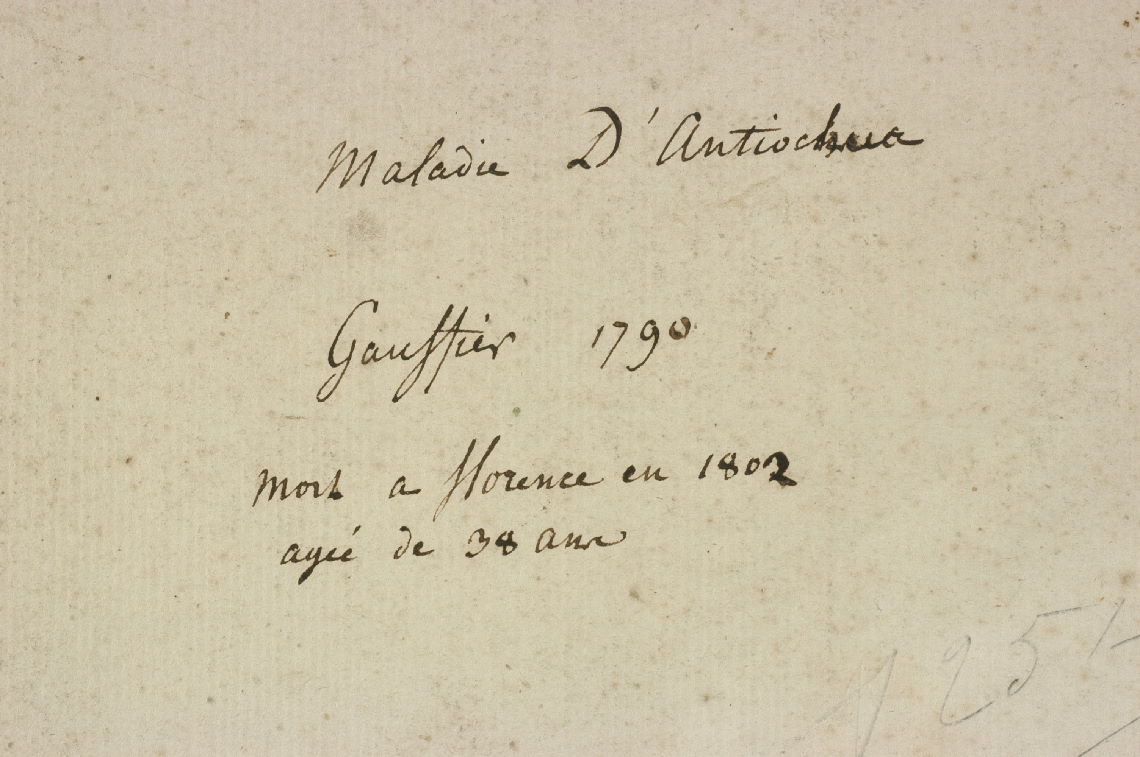 Maladie D'Antiochua
Gauffier 1790
mort a florence en 1802
ageé de 38 ans